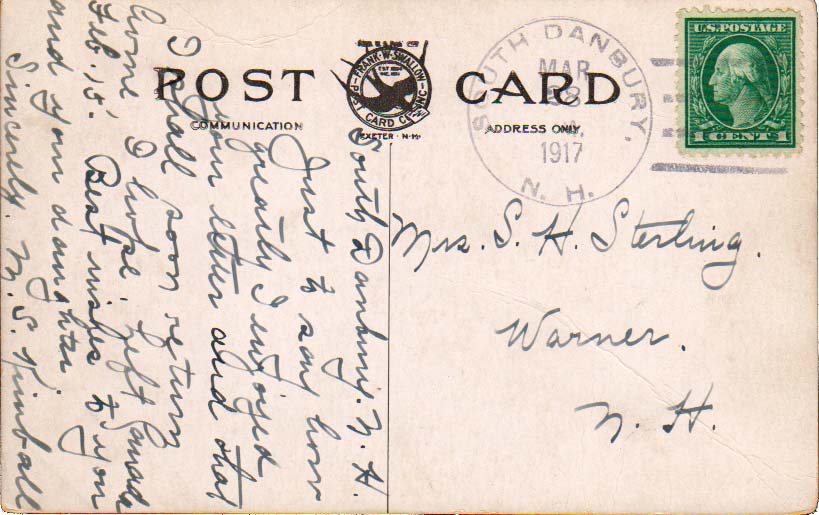 POST CARD
COMMUNICATION
ADDRESS ONLY
FRANK W. SWALLOW
POST CARD CO. INC.
EXETER · N·H·
SOUTH DANBURY,
MAR
1917
N. H.
U.S. POSTAGE
1 CENT 1
South Danbury, N. H.
Just to say how
greatly I enjoyed
your letter and that
I shall soon return
home I hope. Left Canada
Feb. 15. Best wishes to you
and your daughter
Sincerely, M. S. Kimball
Mrs. S. H. Sterling.
Warner.
N. H.